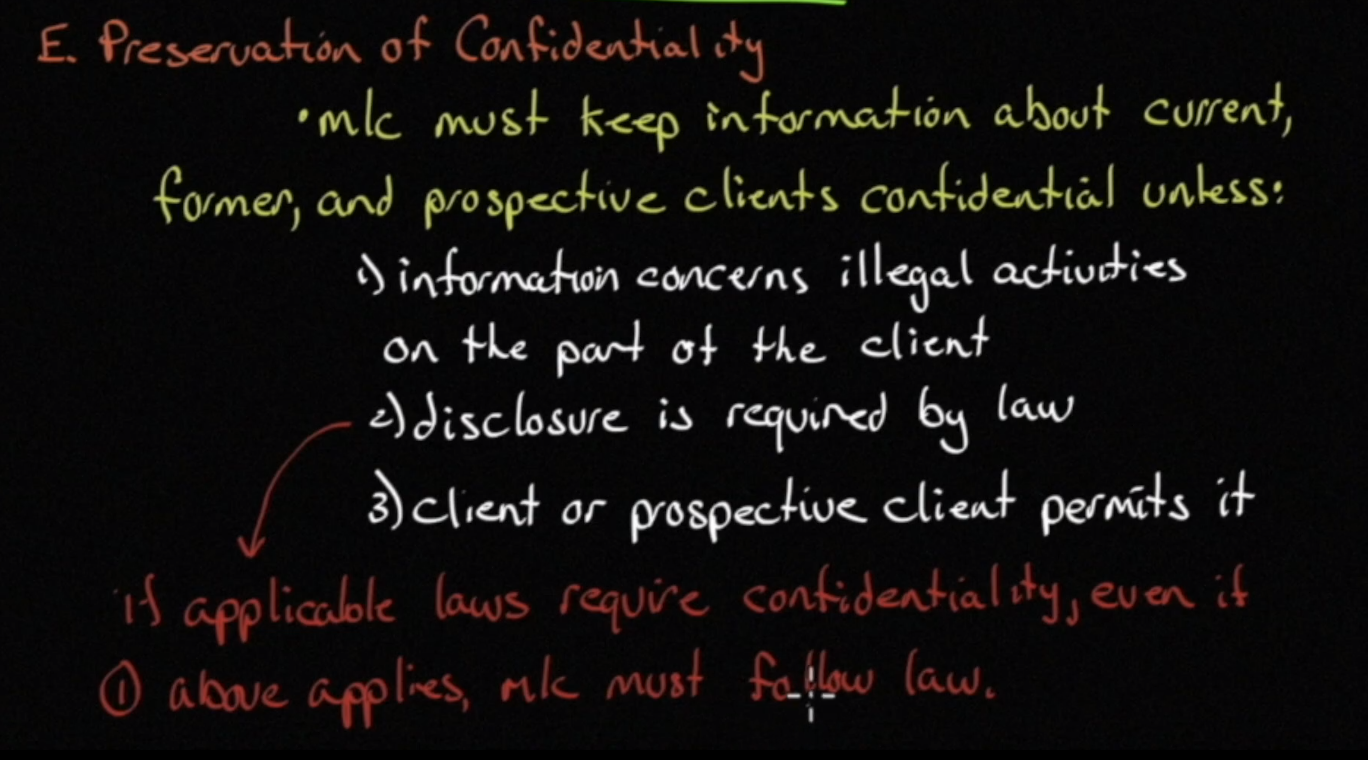 E. Preservation of Confidentiality
• m/c must keep information about current,
former, and prospective clients confidential unless:
1) information concerns illegal activities
on the part of the client
2) disclosure is required by law
3) client or prospective client permits it
if applicable laws require confidentiality, even if
① above applies, m/c must follow law.